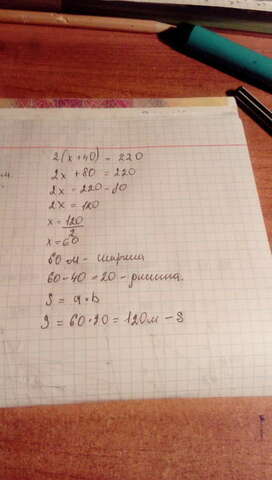 2(x+40) = 220
2x + 80 = 220
2x = 220 - 80
2x = 120
x = 120/2
x = 60
60 м - ширина
60 - 40 = 20 - длина.
S = a · b
S = 60 · 20 = 120 м - S